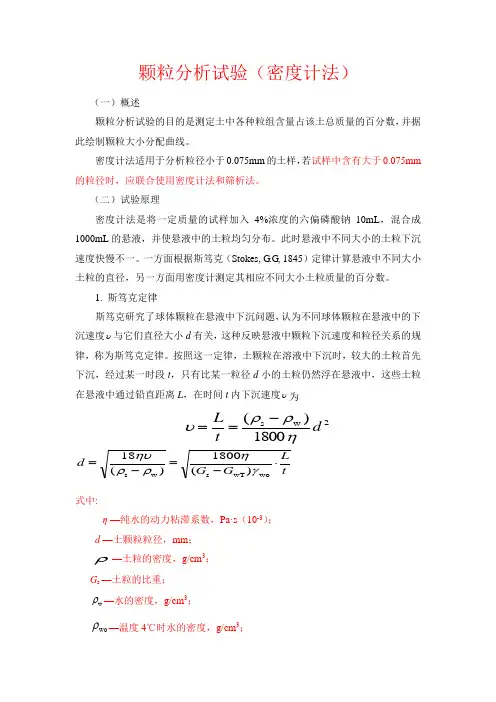 颗粒分析试验（密度计法）
（一）概述
颗粒分析试验的目的是测定土中各种粒组含量占该土总质量的百分数，并据
此绘制颗粒大小分配曲线。
密度计法适用于分析粒径小于 0.075mm 的土样，若试样中含有大于 0.075mm
的粒径时，应联合使用密度计法和筛析法。
（二）试验原理
密度计法是将一定质量的试样加入 4%浓度的六偏磷酸钠 10mL，混合成
1000mL 的悬液，并使悬液中的土粒均匀分布。此时悬液中不同大小的土粒下沉
速度快慢不一。一方面根据斯笃克（Stokes, G.G, 1845）定律计算悬液中不同大小
土粒的直径，另一方面用密度计测定其相应不同大小土粒质量的百分数。
1. 斯笃克定律
斯笃克研究了球体颗粒在悬液中下沉问题，认为不同球体颗粒在悬液中的下
沉速度υ与它们直径大小 d 有关，这种反映悬液中颗粒下沉速度和粒径关系的规
律，称为斯笃克定律。按照这一定律，土颗粒在溶液中下沉时，较大的土粒首先
下沉，经过某一时段 t，只有比某一粒径 d 小的土粒仍然浮在悬液中，这些土粒
在悬液中通过铅直距离 L，在时间 t 内下沉速度υ为
υ = L/t = (ρs − ρw)/(1800η) d²
d = √(18ηυ/(ρs − ρw)) = √(1800η/((Gs − GwT)γwo) · L/t)
式中:
η —纯水的动力粘滞系数，Pa·s（10⁻³）；
d —土颗粒粒径，mm；
ρ —土粒的密度，g/cm³；
Gs —土粒的比重；
ρw —水的密度，g/cm³；
ρw0 —温度 4℃时水的密度，g/cm³；